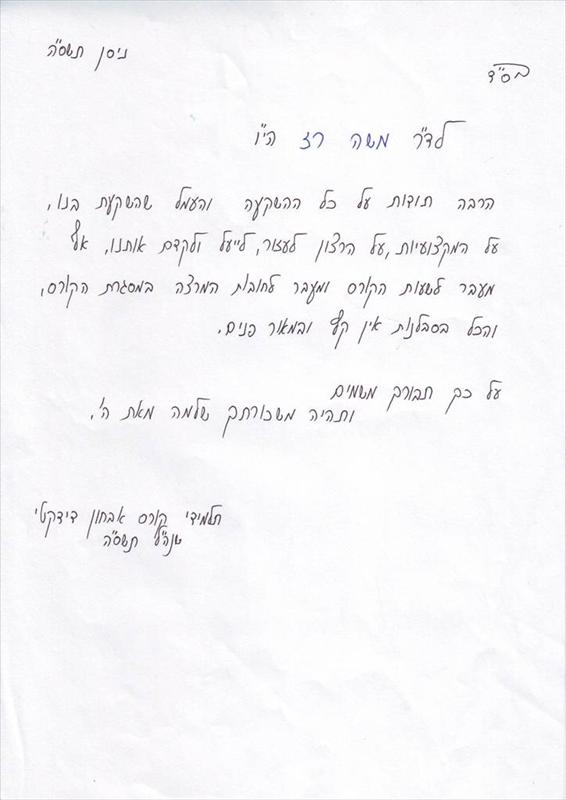 בס"ד
ניסן תשס"ה
לד"ר משה רז הי"ו
הרבה תודות על כל ההשקעה והעמל שהשקעת בנו,
על המקצועיות, על הרצון לעזור, לייעל ולקדם אותנו, אף
מעבר לשעות הקורס ומעבר לחובות המרצה במסגרת הקורס,
והכל בסבלנות אין קץ ובמאור פנים.
על כך תבורך משמים
ותהיה משכורתך שלמה מאת ה'.
תלמידי קורס אבחון דידקטי
שנה"ל תשס"ה